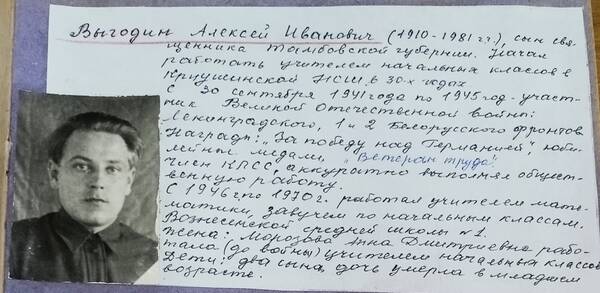 Выгодин Алексей Иванович (1910-1981 г.г.), сын свя-
щенника Тамбовской губернии. Начал
работать учителем начальных классов в
Криушинской НСШ в 30-х годах
С 30 сентября 1941 года по 1945 год - участ-
ник Великой Отечественной войны:
Ленинградского, 1 и 2 Белорусского фронтов
Награды: „За победу над Германией", юби-
лейные медали, „Ветеран труда".
член КПСС, аккуратно выполнял общест-
венную работу.
С 1946 г. по 1970 г. работал учителем мате-
матики, завучем по начальным классам.
Вознесенской средней школы №1.
Жена: Морозова Анна Дмитриевна рабо-
тала (до войны) учителем начальных классов
Дети: два сына, дочь умерла в младшем
возрасте.